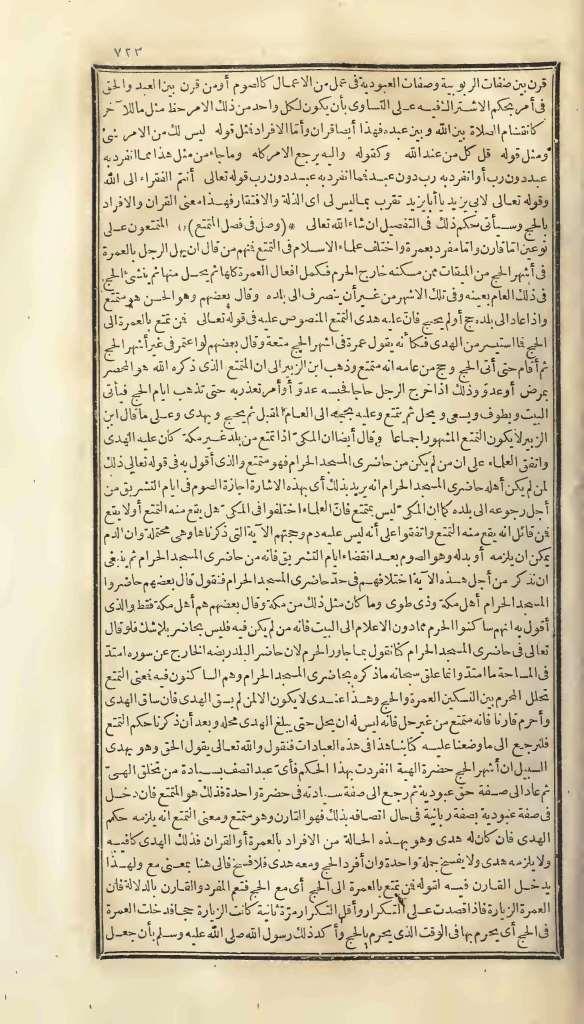 ٧٢٣
قرن بين صفات الربوبية وصفات العبودية فى عمل من الاعمال كالصوم أومن قرن بين العبد والحق
فى أمر بحكم الاشتراك فيه على التساوى بأن يكون لكل واحد من ذلك الامر حظ مثل ماللآخر
كانقسام الصلاة بين الله وبين عبده فهذا أيضا قران وأما الافراد فمثل قوله ليس لك من الامر شئ
ومثل قوله قل كل من عند الله وكقوله واليه يرجع الامر كله وماجاء من مثل هذا مما انفرد به
عبد دون رب أو انفرد به رب دون عبد فما انفرد به عبد دون رب قوله تعالى أنتم الفقراء الى الله
وقوله تعالى لابى يزيد يا أبا يزيد تقرب بما ليس لى اى الذلة والافتقار فهذا معنى القران والافراد
بالحج وسيأتى حكم ذلك فى التفصيل ان شاء الله تعالى * (وصل فى فصل المتمتع) * المتمتعون على
نوعين اما قارن واما مفرد بعمرة واختلف علماء الاسلام فى التمتع فمنهم من قال ان يهل الرجل بالعمرة
فى أشهر الحج من الميقات ممن مسكنه خارج الحرم فكمل افعال العمرة كلها ثم يحل منها ثم ينشئ الحج
فى ذلك العام بعينه وفى تلك الاشهر من غير أن ينصرف الى بلده وقال بعضهم وهو الحسن هو متمتع
واذا عاد الى بلده حج أو لم يحج فان عليه هدى التمتع المنصوص عليه فى قوله تعالى فمن تمتع بالعمرة الى
الحج فما استيسر من الهدى فكانه يقول عمرة فى اشهر الحج متعة وقال بعضهم لو اعتمر فى غير أشهر الحج
ثم أقام حتى أتى الحج وحج من عامه انه متمتع وذهب ابن الزبير الى ان المتمتع الذى ذكره الله هو المحصر
بمرض أو عدو وذلك اذا خرج الرجل حاجا فحبسه عدو أو أمر تعذر به حتى تذهب ايام الحج فيأتى
البيت ويطوف ويسعى ويحل ثم يتمتع وعليه بحجه الى العام المقبل ثم يحج ويهدى وعلى ما قال ابن
الزبير لا يكون التمتع المشهور اجماعا وقال أيضا ان المكى اذا تمتع من بلد غير مكة كان عليه الهدى
واتفق العلماء على ان من لم يكن من حاضرى المسجد الحرام فهو متمتع والذى أقول به فى قوله تعالى ذلك
لمن لم يكن أهله حاضرى المسجد الحرام انه يريد بذلك أى بهذه الاشارة اجازة الصوم فى ايام التشريق من
أجل رجوعه الى بلده كما ان المكى ليس بمتمتع فان العلماء اختلفوا فى المكى هل يقع منه التمتع أو لا يقع
فمن قائل انه يقع منه التمتع واتفقوا على أنه ليس عليه دم وحجتهم الآية التى ذكرناها وهى محتملة وان الدم
يمكن ان يلزمه أو بدله وهو الصوم بعد انقضاء ايام التشريق فانه من حاضرى المسجد الحرام ثم ينبغى
ان نذكر من أجل هذه الآية اختلافهم فى حد حاضرى المسجد الحرام فنقول قال بعضهم حاضروا
المسجد الحرام أهل مكة وذى طوى وما كان مثل ذلك من مكة وقال بعضهم هم أهل مكة فقط والذى
أقول به انهم ساكنوا الحرم مما دون الاعلام الى البيت فانه من لم يكن فيه فليس بحاضر بلا شك فلو قال
تعالى فى حاضرى المسجد الحرام كنا نقول بما جاور الحرم لان حاضر البلد ربضه الخارج عن سوره امتد
فى المساحة ما امتد وانما علق سبحانه ما ذكره بحاضرى المسجد الحرام وهم الساكنون فيه فمعنى التمتع
تحلل المحرم بين النسكين العمرة والحج وهذا عندى لا يكون الا لمن لم يسق الهدى فان ساق الهدى
وأحرم قارنا فانه متمتع من غير حل فانه ليس له ان يحل حتى يبلغ الهدى محله وبعد أن ذكرنا حكم التمتع
فلنرجع الى ما وضعنا عليه كتابنا هذا فى هذه العبادات فنقول والله تعالى يقول الحق وهو يهدى
السبيل ان أشهر الحج حضرة الهية انفردت بهذا الحكم فأى عبد اتصف بسيادة من تخلق الهى
ثم عاد الى صفة حق عبودية ثم رجع الى صفة سيادته فى حضرة واحدة فذلك هو المتمتع فان دخل
فى صفة عبودية بصفة ربانية فى حال اتصافه بذلك فهو القارن وهو متمتع ومعنى التمتع انه يلزمه حكم
الهدى فان كان له هدى وهو بهذه الحالة من الافراد بالعمرة أو القران فذلك الهدى كافيه
ولا يلزمه هدى ولا يفسخ جملة واحدة وان أفرد الحج ومعه هدى فلا فسخ فالى هنا بمعنى مع ولهذا
يدخل القارن فيه لقوله فمن تمتع بالعمرة الى الحج أى مع الحج فتعم المفرد والقارن بالدلالة فان
العمرة الزيارة فاذا قصدت على التكرار وأقل التكرار مرة ثانية كانت الزيارة حجا فدخلت العمرة
فى الحج أى يحرم بها فى الوقت الذى يحرم بالحج وأكد ذلك رسول الله صلى الله عليه وسلم بأن جعل